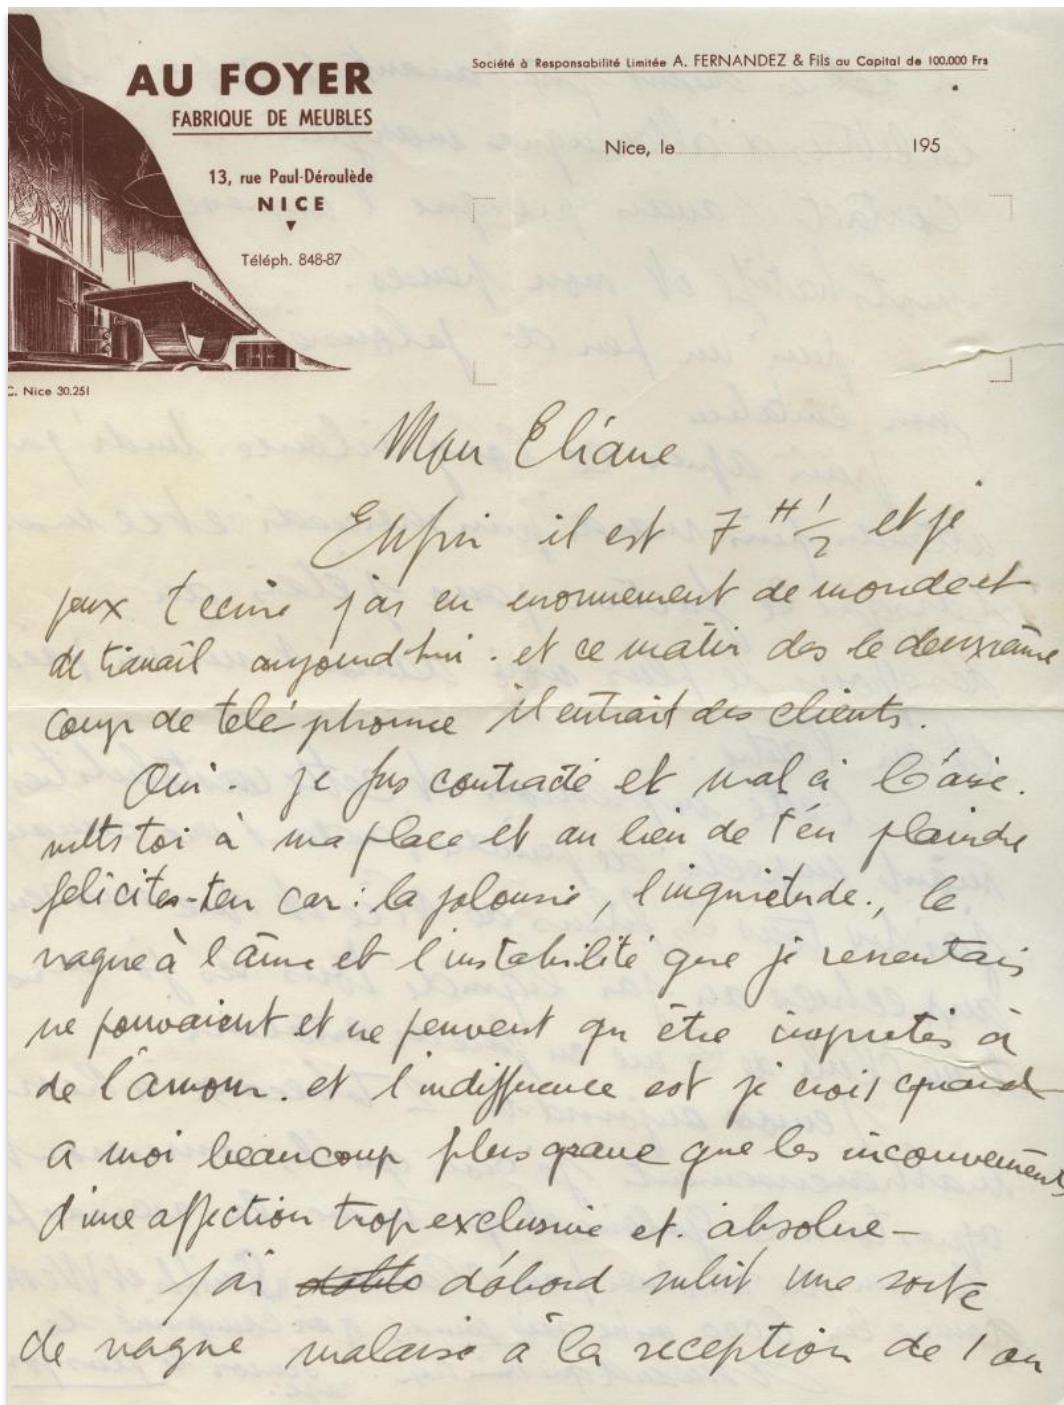 AU FOYER
FABRIQUE DE MEUBLES
13, rue Paul-Déroulède
NICE
Téléph. 848-87
Société à Responsabilité Limitée A. FERNANDEZ & Fils au Capital de 100.000 Frs
Nice, le 195
C. Nice 30.251
Mon Eliane
Enfin il est 7 H 1/2 et je
peux t'ecrire j'ai eu enormement de monde et
de travail aujourd'hui. et ce matin des le deuxième
coup de teléphonne il entrait des clients.
Oui. je fus contracté et mal à l'aise.
mets toi à ma place et au lieu de t'en plaindre
felicites-t'en car : la jalousie, l'inquiétude., le
vague à l'âme et l'instabilité que je ressentais
ne pouvaient et ne peuvent qu'être imputés à
de l'amour. et l'indifference est je crois quand
a moi beaucoup plus grave que les inconvenients
d'une affection trop exclusive et. absolue -
J'ai d'abord subit une sorte
de vague malaise à la reception de ton